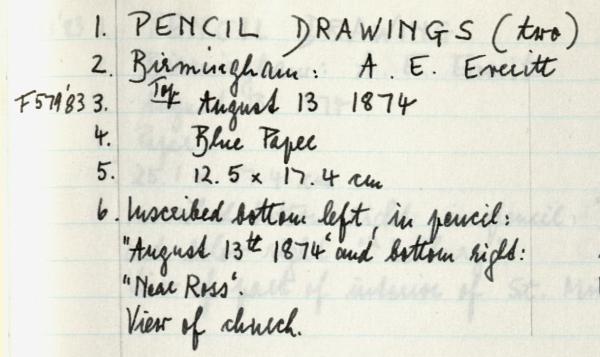 1. PENCIL DRAWINGS (two)
2. Birmingham: A E Everitt
F579'83 3. Top August 13 1874
4. Blue Paper
5. 12.5 x 17.4 cm
6. Inscribed bottom left, in pencil:
"August 13th 1874" and bottom right:
"Near Ross".
View of church.